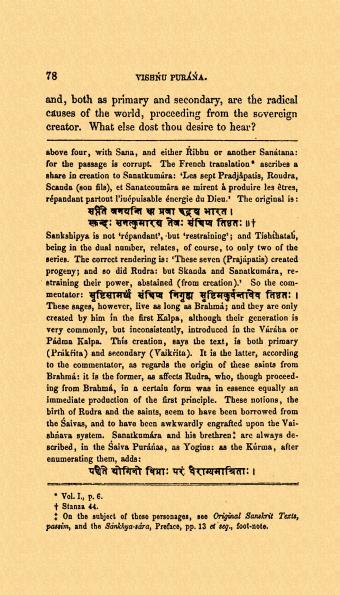 78
VISHŃU PURÁŃA.
and, both as primary and secondary, are the radical
causes of the world, proceeding from the sovereign
creator. What else dost thou desire to hear?
above four, with Sana, and either Ŕibhu or another Sanátana:
for the passage is corrupt. The French translation* ascribes a
share in creation to Sanatkumára: 'Les sept Pradjâpatis, Roudra,
Scanda (son fils), et Sanatcoumâra se mirent à produire les êtres,
répandant partout l'inépuisable énergie du Dieu.' The original is:
स्कन्दः सनत्कुमारश्च तेजः संक्षिप्य तिष्ठतः ॥†
Sankshipya is not 'répandant', but 'restraining'; and Tisht́hataá,
being in the dual number, relates, of course, to only two of the
series. The correct rendering is: 'These seven (Prajápatis) created
progeny; and so did Rudra: but Skanda and Sanatkumára, re-
straining their power, abstained (from creation).' So the com-
mentator: सृष्टिसामर्थ्यं संक्षिप्य निगृह्य सृष्टिमकुर्वन्तावेव तिष्ठतः ।
These sages, however, live as long as Brahmá; and they are only
created by him in the first Kalpa, although their generation is
very commonly, but inconsistently, introduced in the Váráha or
Pádma Kalpa. This creation, says the text, is both primary
(Prákŕita) and secondary (Vaikŕita). It is the latter, according
to the commentator, as regards the origin of these saints from
Brahmá: it is the former, as affects Rudra, who, though proceed-
ing from Brahmá, in a certain form was in essence equally an
immediate production of the first principle. These notions, the
birth of Rudra and the saints, seem to have been borrowed from
the Śaivas, and to have been awkwardly engrafted upon the Vai-
shńava system. Sanatkumára and his brethren‡ are always de-
scribed, in the Śaiva Puráńas, as Yogins: as the Kúrma, after
enumerating them, adds:
पञ्चैते योगिनो विप्राः परं वैराग्यमाश्रिताः ।
* Vol. I., p. 6.
† Stanza 44.
‡ On the subject of these personages, see Original Sanskrit Texts,
passim, and the Sánkhya-sára, Preface, pp. 13 et seq., foot-note.